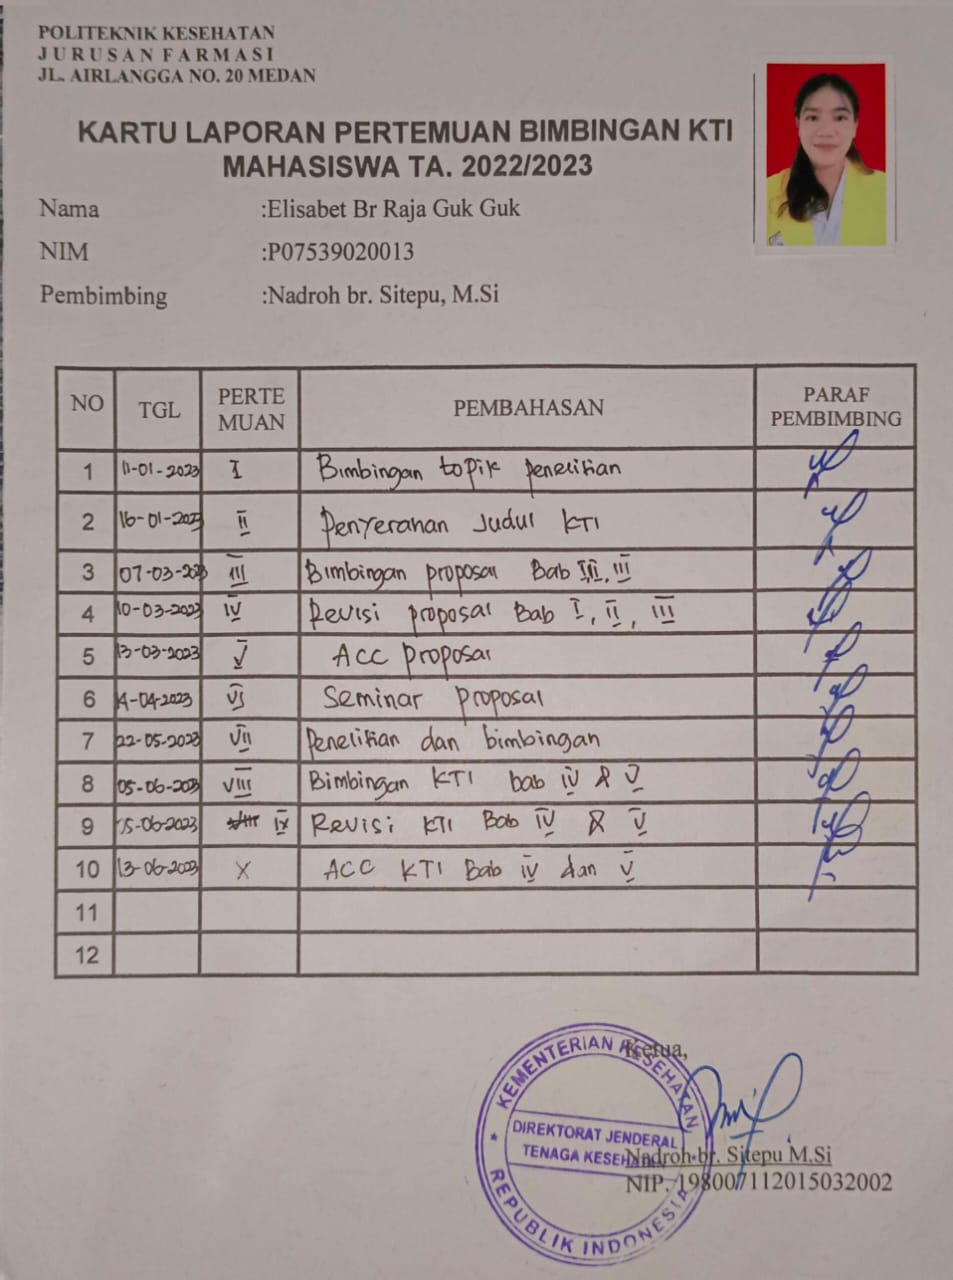 POLITEKNIK KESEHATAN
JURUSAN FARMASI
JL. AIRLANGGA NO. 20 MEDAN
KARTU LAPORAN PERTEMUAN BIMBINGAN KTI
MAHASISWA TA. 2022/2023
Nama :Elisabet Br Raja Guk Guk
NIM :P07539020013
Pembimbing :Nadroh br. Sitepu, M.Si
NO TGL PERTE MUAN PEMBAHASAN PARAF PEMBIMBING
1 11-01-2023 I Bimbingan topik penelitian
2 16-01-2023 II Penyerahan Judul KTI
3 07-03-2023 III Bimbingan proposal Bab I,II,III
4 10-03-2023 IV Revisi proposal Bab I, II, III
5 13-03-2023 V ACC proposal
6 14-04-2023 VI Seminar proposal
7 22-05-2023 VII Penelitian dan bimbingan
8 05-06-2023 VIII Bimbingan KTI bab IV & V
9 -06-2023 IX Revisi KTI Bab IV & V
10 13-06-2023 X ACC KTI Bab IV dan V
11
12
Ketua,
KEMENTERIAN KESEHATAN
DIREKTORAT JENDERAL
TENAGA KESEHATAN
REPUBLIK INDONESIA
Nadroh br. Sitepu M.Si
NIP. 198007112015032002